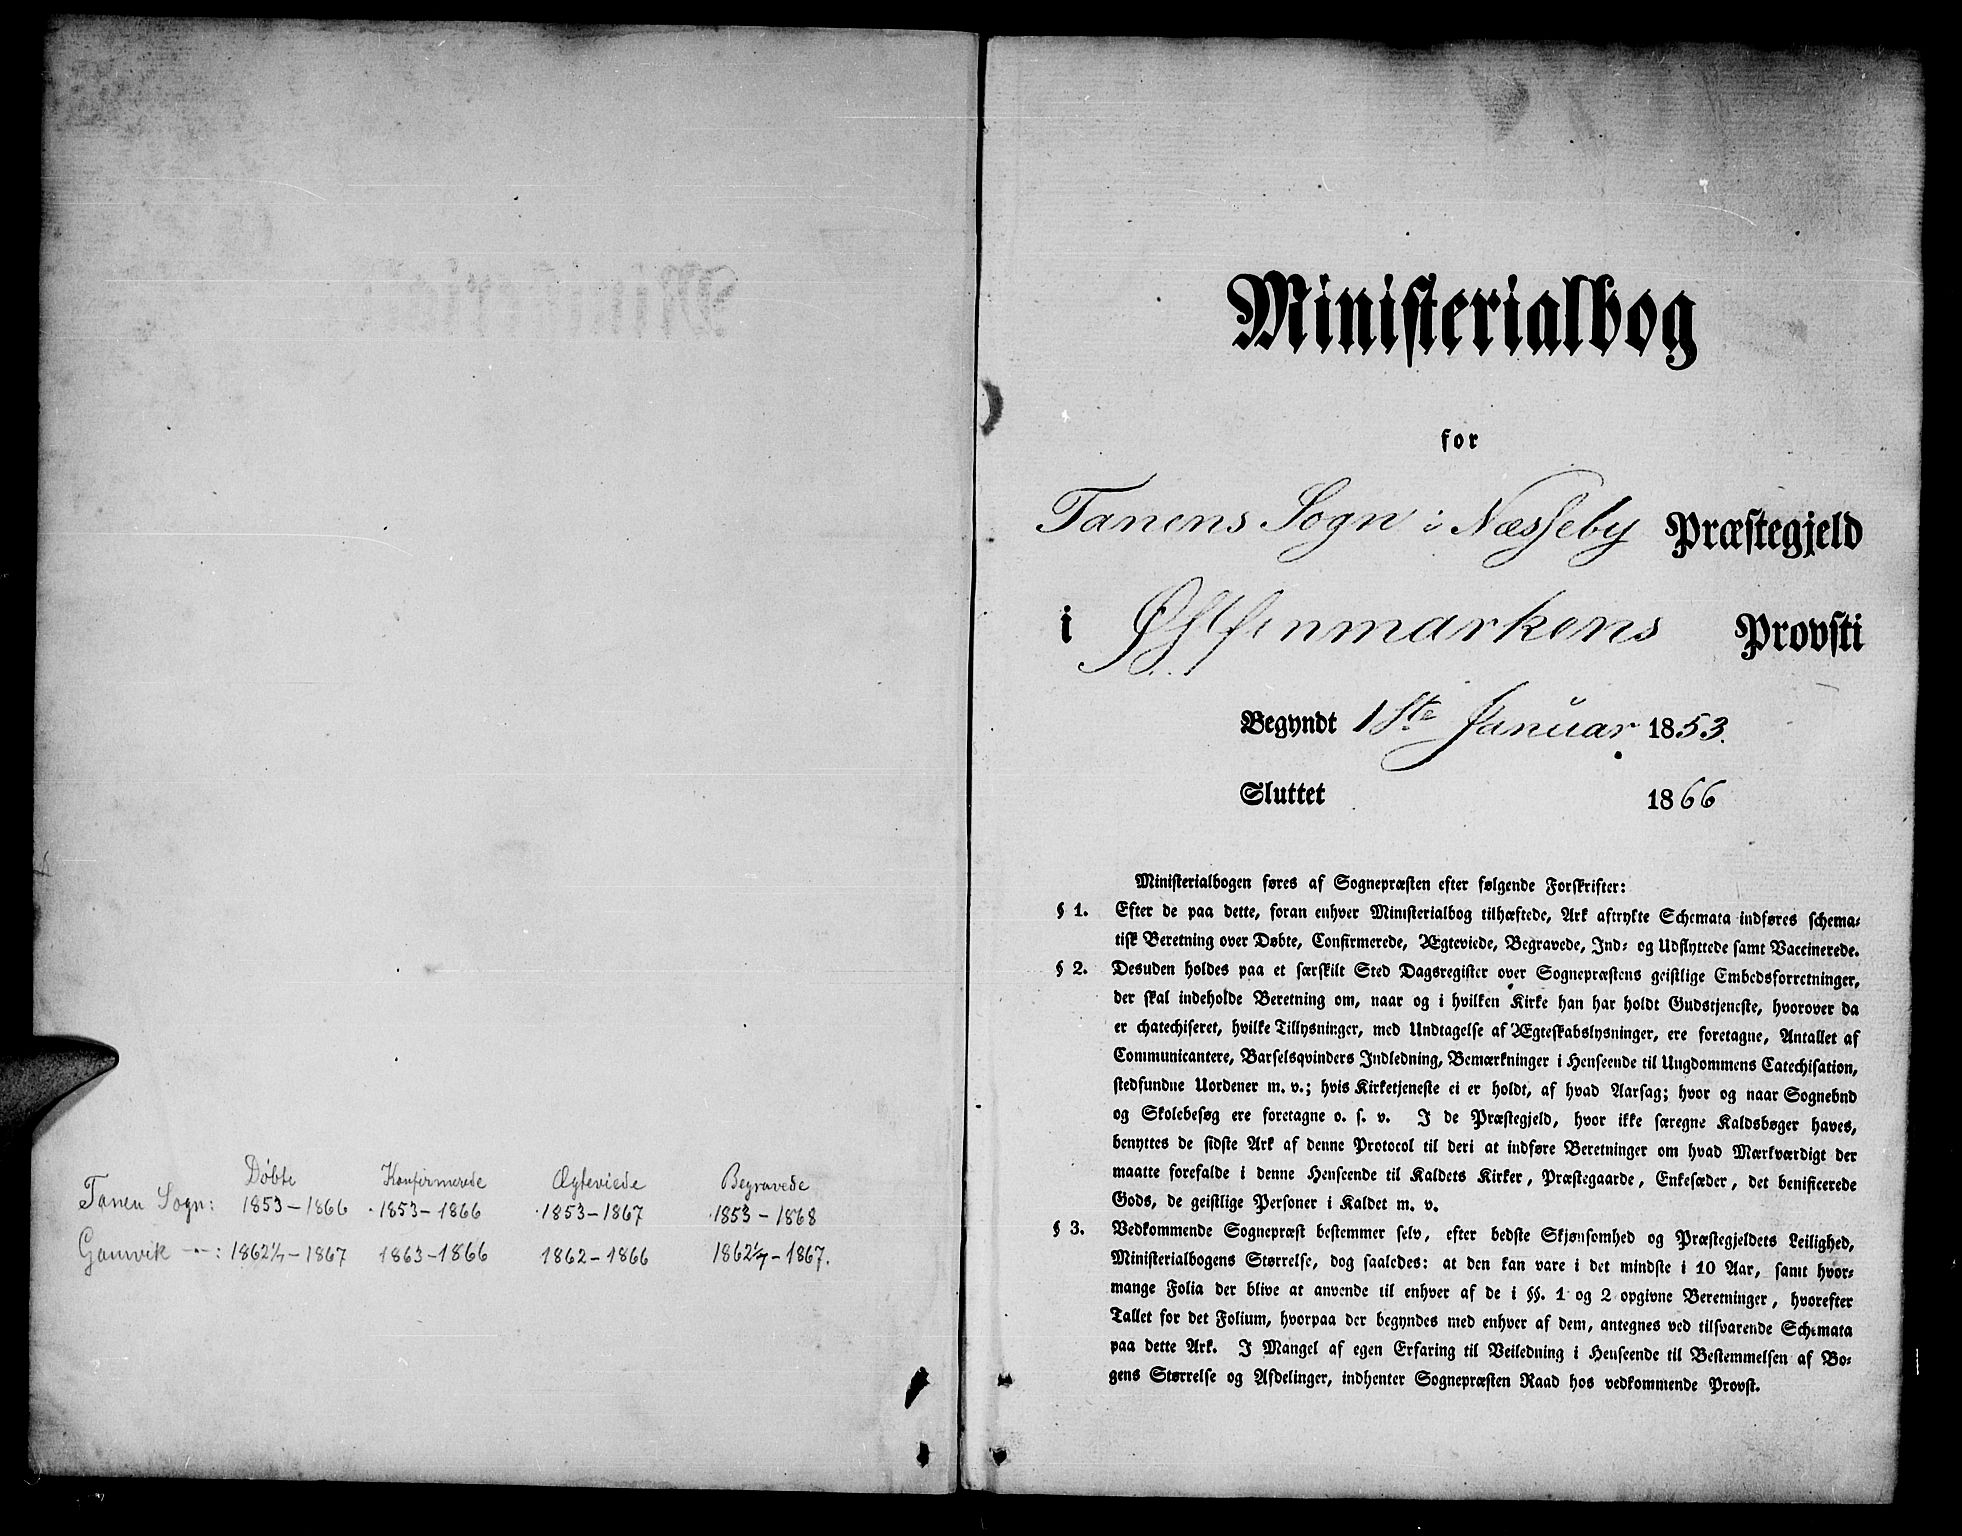 Døbte Konfirmerede Ægteviede Begravede
Tanen Sogn: 1853–1866 1853–1866 1853–1867 1853–1868
Gamvik —"—: 1862 1/7–1867 1863–1866 1862–1866 1862 1/7–1867.
Ministerialbog
for
Tanens Sogn i Næsseby Præstegjeld
i Østfinmarkens Provsti
Begyndt 1ste Januar 1853.
Sluttet 1866
Ministerialbogen føres af Sognepræsten efter følgende Forskrifter:
§ 1. Efter de paa dette, foran enhver Ministerialbog tilhæftede, Ark aftrykte Schemata indføres schema-
tisk Beretning over Døbte, Confirmerede, Ægteviede, Begravede, Ind- og Udflyttede samt Vaccinerede.
§ 2. Desuden holdes paa et særskilt Sted Dagsregister over Sognepræstens geistlige Embedsforretninger,
der skal indeholde Beretning om, naar og i hvilken Kirke han har holdt Gudstjeneste, hvorover da
er chatechiseret, hvilke Tillysninger, med Undtagelse af Ægteskabslysninger, ere foretagne, Antallet af
Communicantere, Barselsqvinders Indledning, Bemærkninger i Henseende til Ungdommens Catechisation,
stedfundne Uordener m. v.; hvis Kirketjeneste ei er holdt, af hvad Aarsag; hvor og naar Sognebud
og Skolebesøg ere foretagne o. s. v. I de Præstegjeld, hvor ikke særegne Kaldsbøger haves,
benyttes de sidste Ark af denne Protocol til deri at indføre Beretninger om hvad Mærkværdigt der
maatte forefalde i denne Henseende til Kaldets Kirker, Præstegaarde, Enkesæder, det benificerede
Gods, de geistlige Personer i Kaldet m. v.
§ 3. Vedkommende Sognepræst bestemmer selv, efter bedste Skjønsomhed og Præstegjeldets Leilighed,
Ministerialbogens Størrelse, dog saaledes: at den kan vare i det mindste i 10 Aar, samt hvor-
mange Folia der blive at anvende til enhver af de i §§. 1 og 2 opgivne Beretninger, hvorefter
Tallet for det Folium, hvorpaa der begyndes med enhver af dem, antegnes ved tilsvarende Schemata
paa dette Ark. I Mangel af egen Erfaring til Veiledning i Henseende til Bestemmelsen af Bo-
gens Størrelse og Afdelinger, indhenter Sognepræsten Raad hos vedkommende Provst.